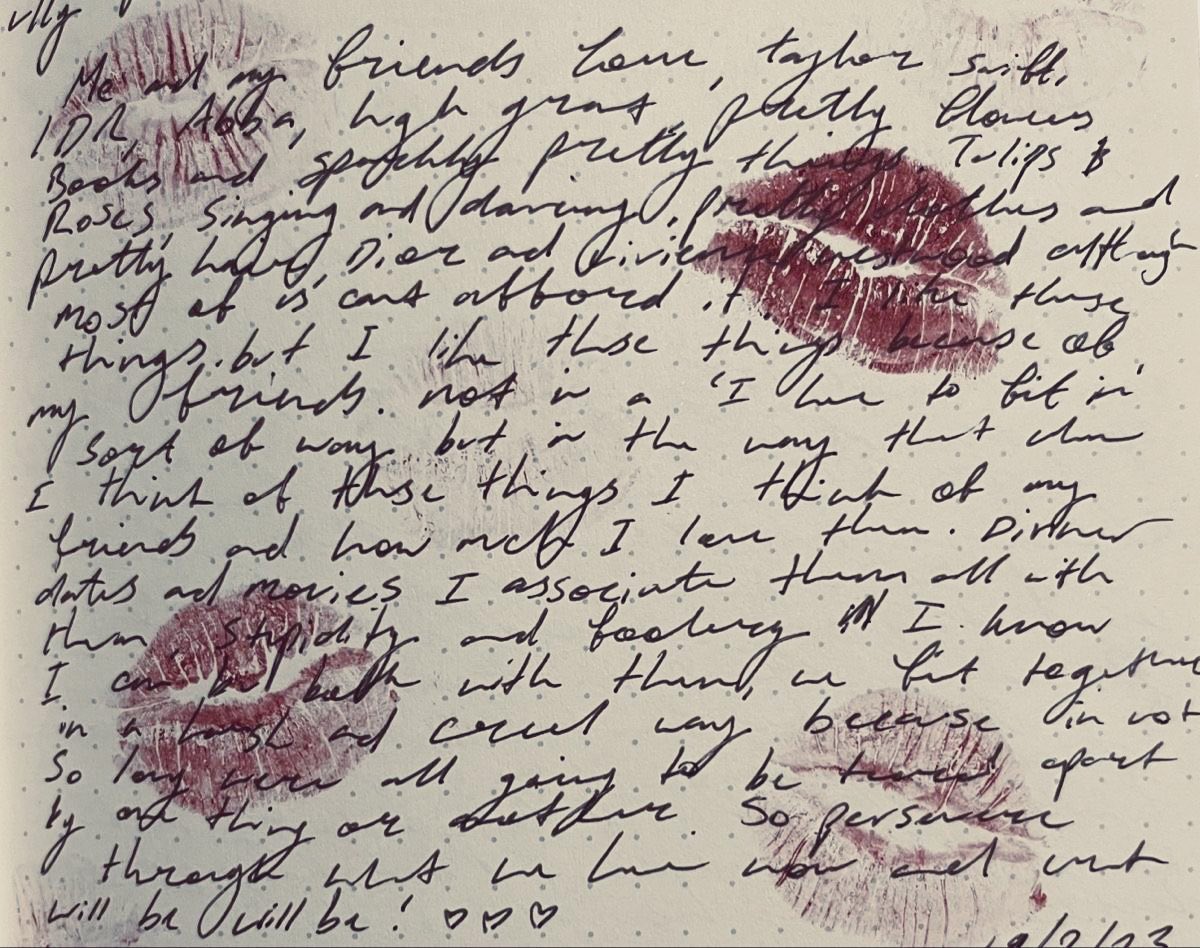 Me and my friends love, taylor swift,
1DR, Abba, high grout, pretty flowers
Books and sparkly pretty things. Tulips &
Roses, Singing and dancing, pretty clothes and
pretty hair, Dior and vivienne westwood although
most of us cant afford it I like these
things. but I like these things because of
my friends. not in a 'I have to fit in'
sort of way but in the way that when
I think of these things I think of my
friends and how much I love them. Dinner
dates and movies I associate them all with
them, Stupidity and foolery I know
I can be both with them, we fit together
in a harsh and cruel way because in not
so long were all going to be teared apart
by one thing or another. So persevere
through what we have now and what
will be will be! ♡♡♡